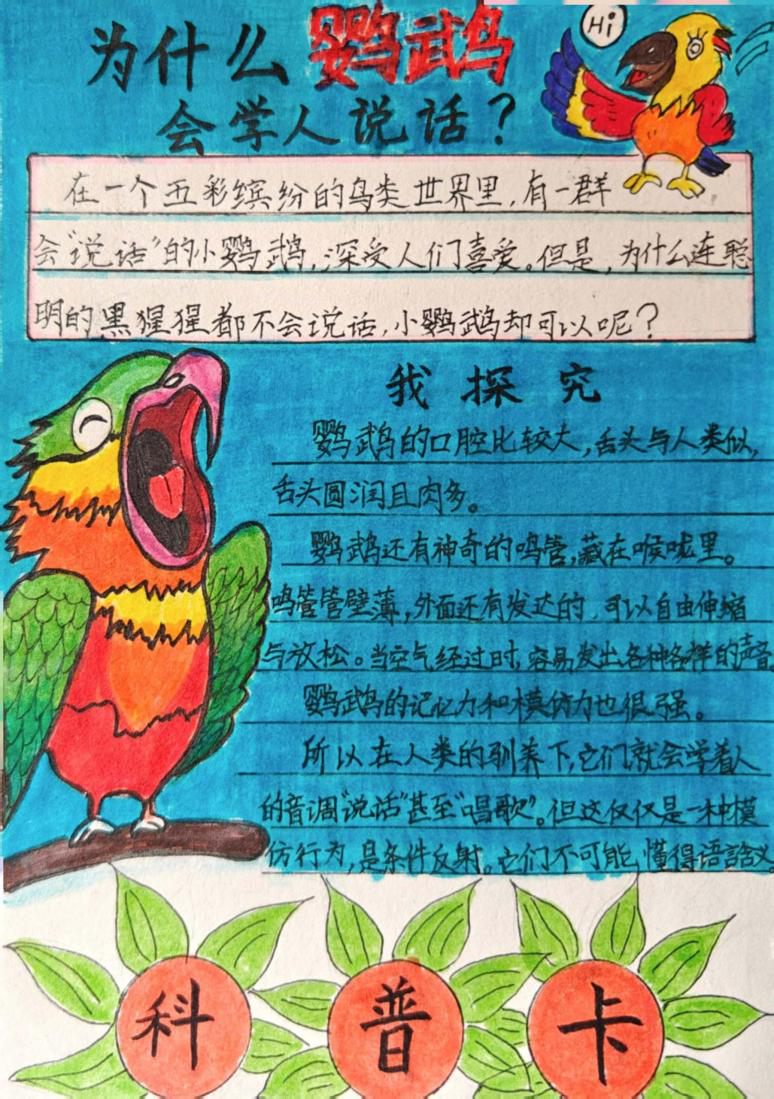 为什么鹦鹉
Hi
会学人说话？
在一个五彩缤纷的鸟类世界里，有一群
会“说话”的小鹦鹉，深受人们喜爱。但是，为什么连聪
明的黑猩猩都不会说话，小鹦鹉却可以呢？
我探究
鹦鹉的口腔比较大，舌头与人类似，
舌头圆润且肉多。
鹦鹉还有神奇的鸣管，藏在喉咙里。
鸣管管壁薄，外面还有发达的，可以自由伸缩
与放松。当空气经过时，容易发出各种各样的声音
鹦鹉的记忆力和模仿力也很强。
所以在人类的驯养下，它们就会学着人
的音调“说话”甚至“唱歌”。但这仅仅是一种模
仿行为，是条件反射。它们不可能懂得语言含义
科普卡